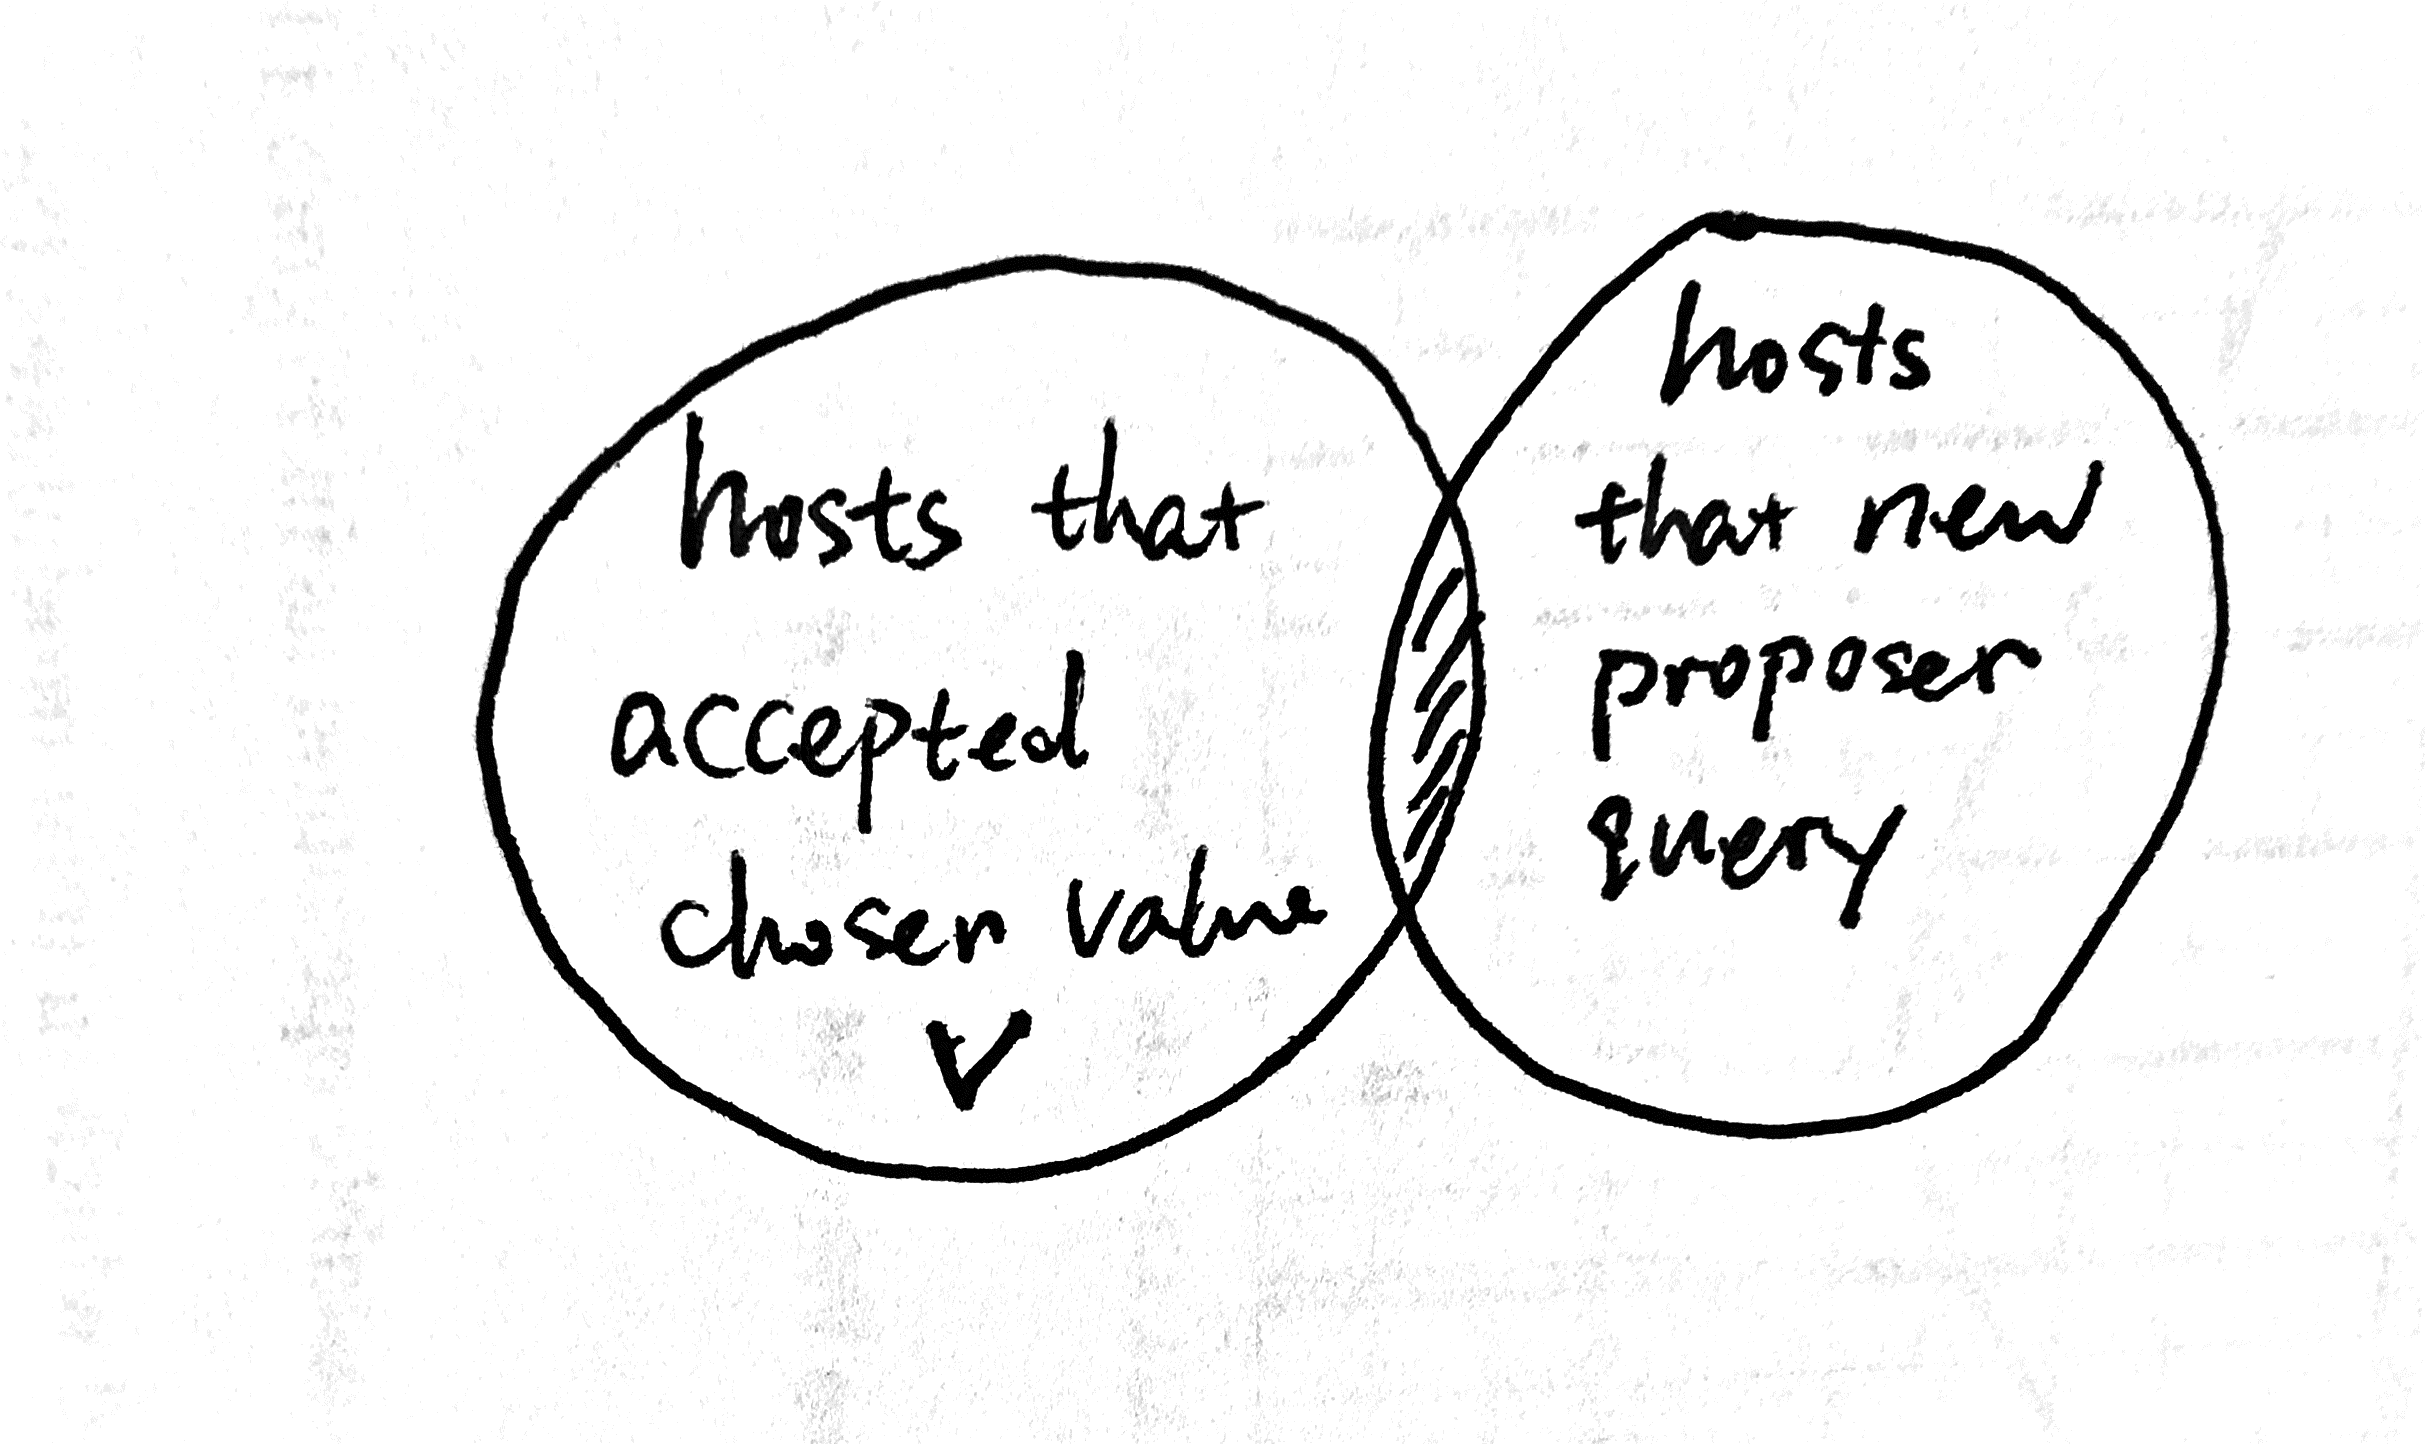 hosts that
accepted
chosen value
V
hosts
that new
proposer
query